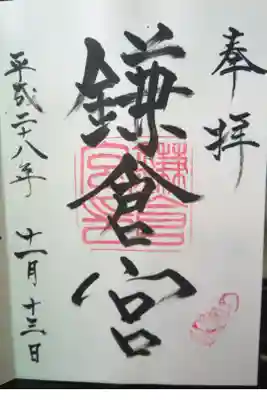 奉拝
鎌倉宮
平成二十八年 十一月 十三日